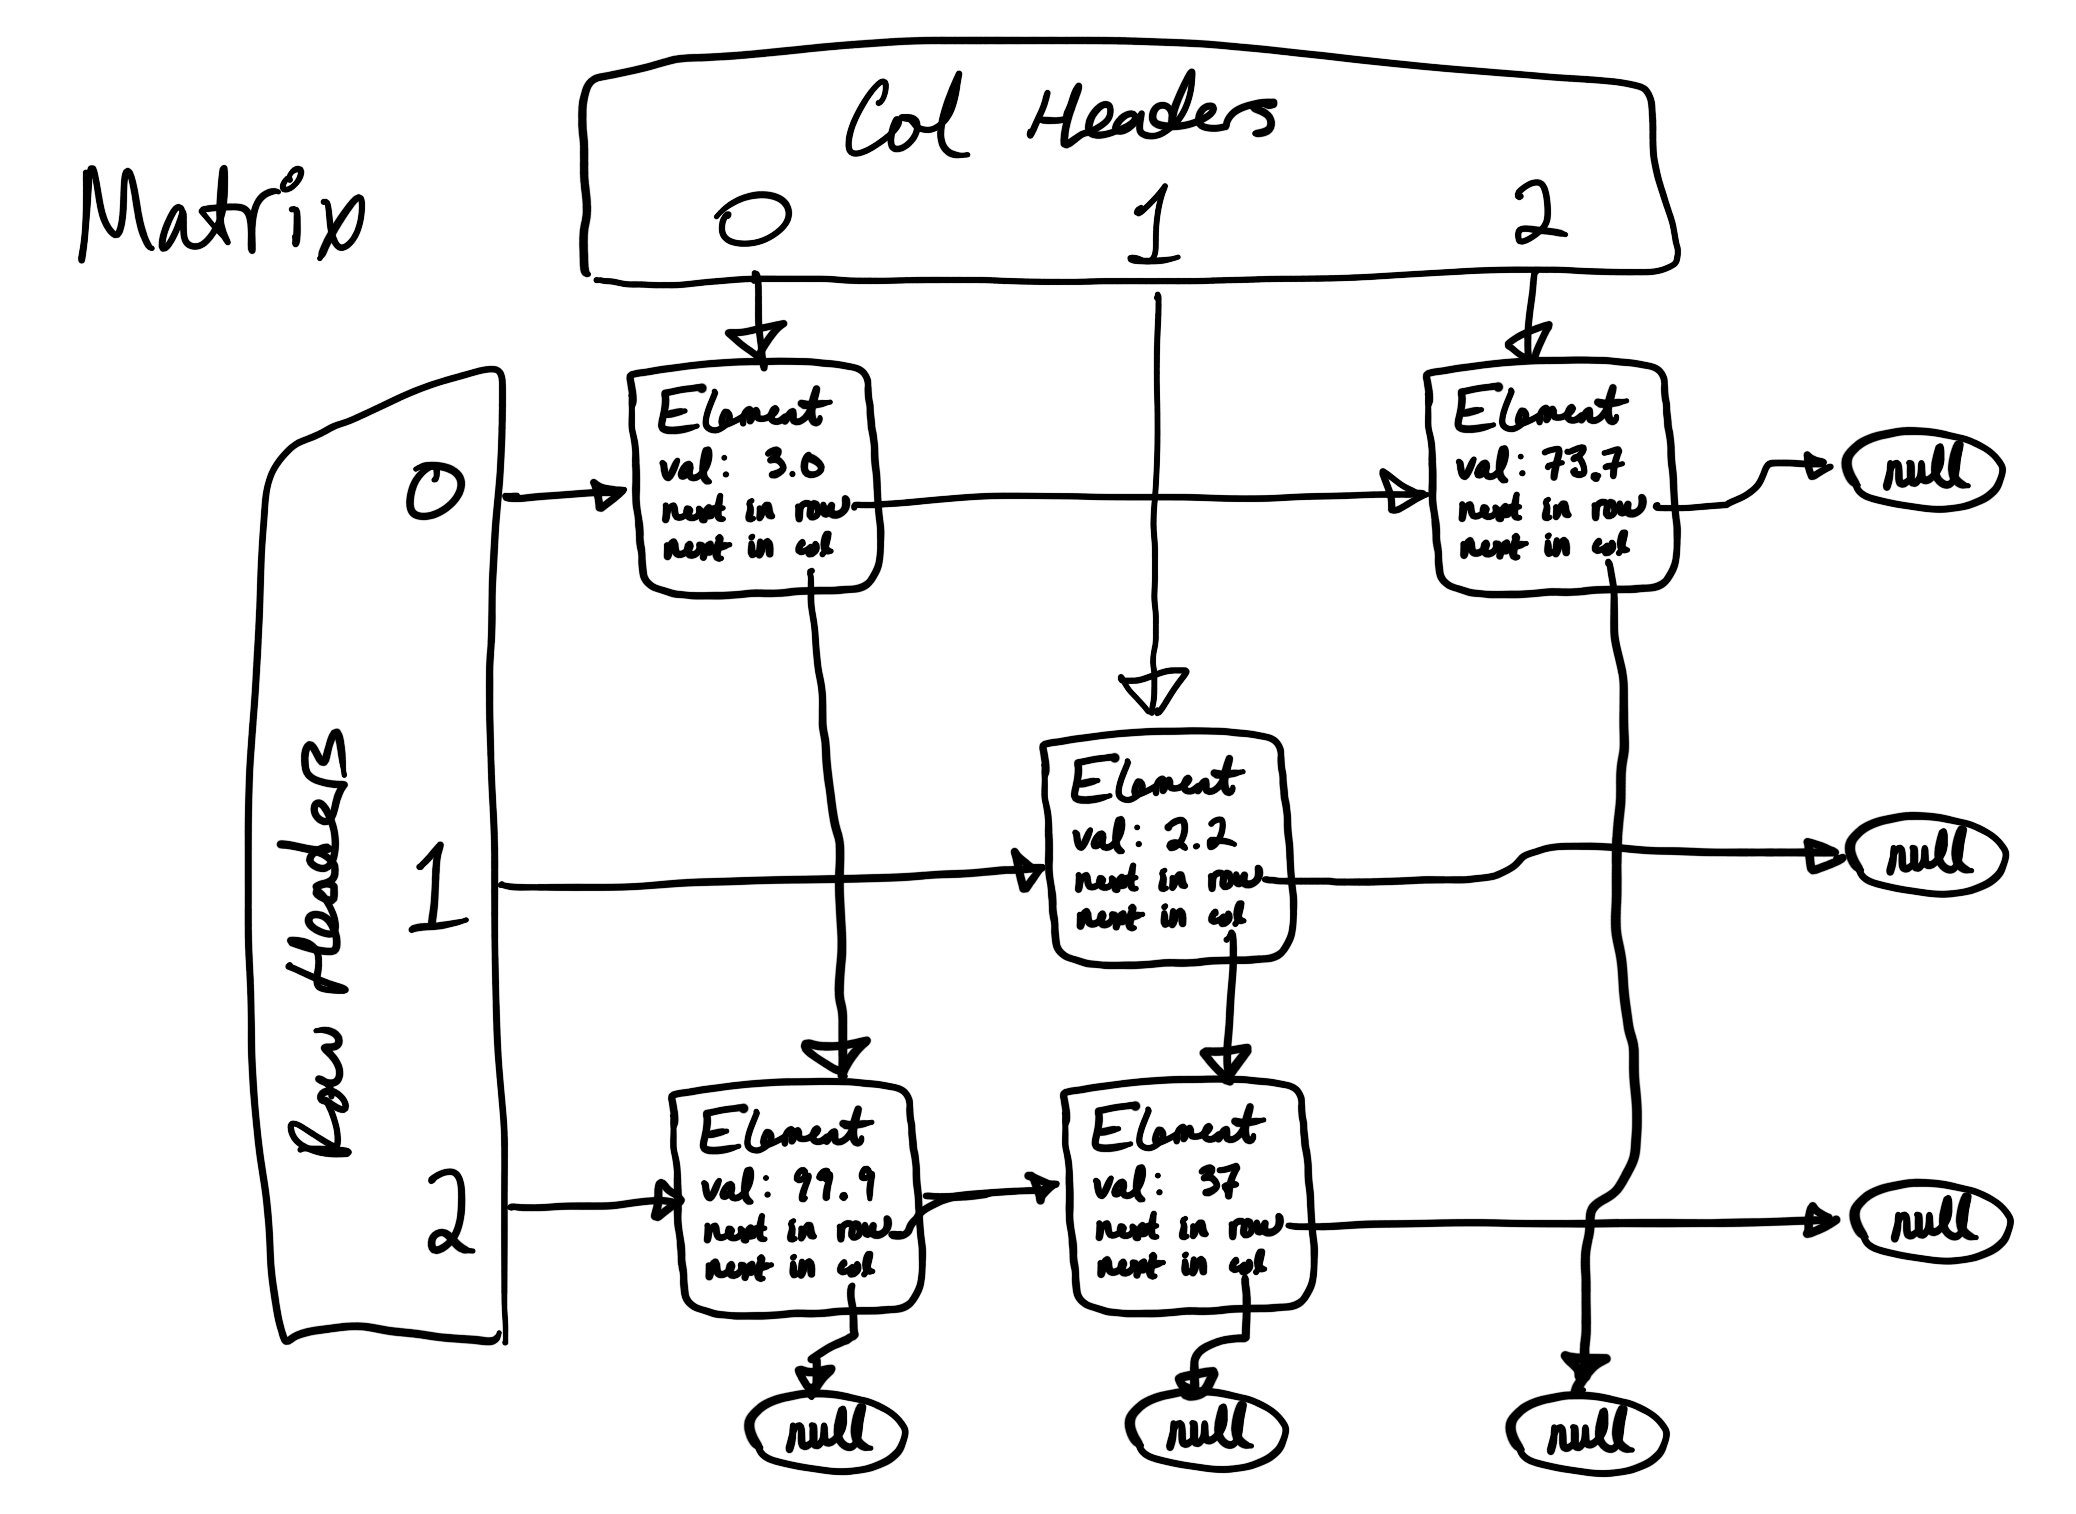 Matrix
Col Headers
0 1 2
Row Headers
0
Element
val: 3.0
next in row
next in col
Element
val: 73.7
next in row
next in col
null
1
Element
val: 2.2
next in row
next in col
null
2
Element
val: 99.9
next in row
next in col
Element
val: 37
next in row
next in col
null
null
null
null